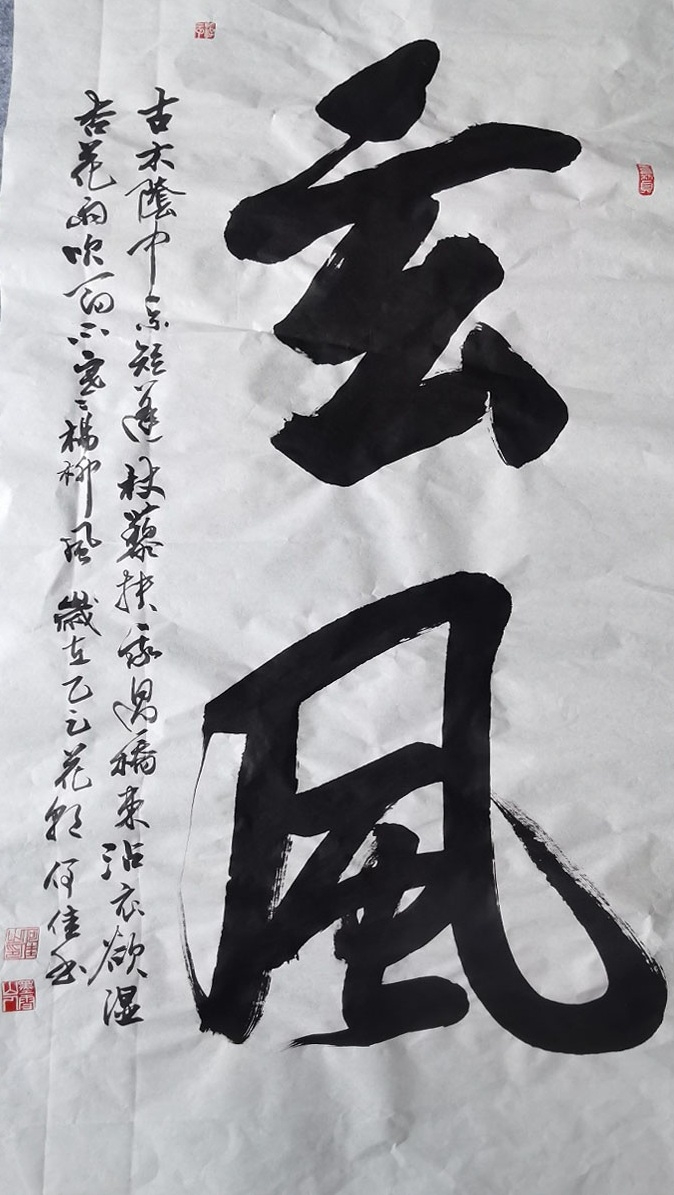 玄風
古木陰中系短蓬杖藜扶我過橋東沾衣欲湿
杏花雨吹面不寒楊柳風 歲在乙巳花朝何佳書